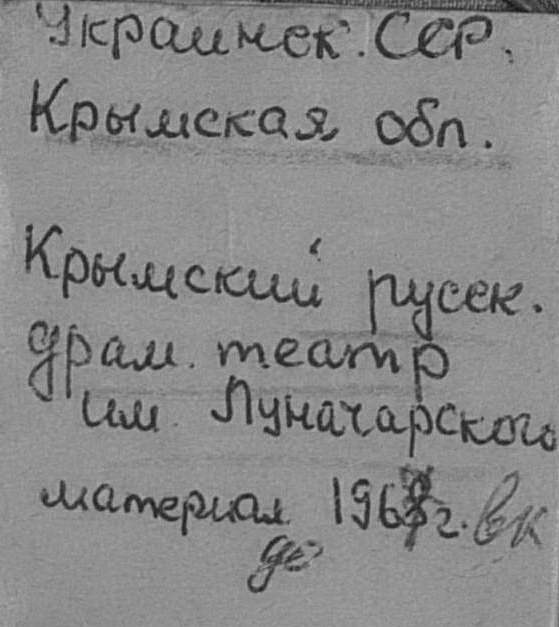 Украинск. ССР.
Крымская обл.
Крымский русск.
драм. театр
им. Луначарского
материал 196 г. вк
до